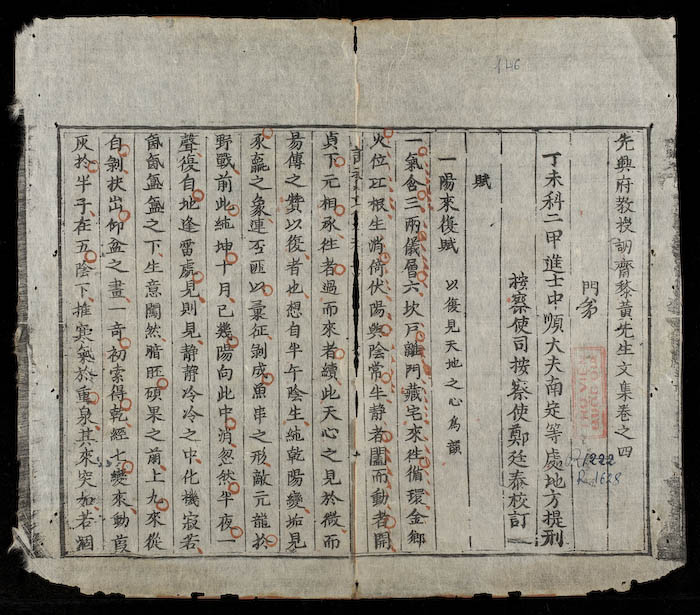 先興府教授訥齋黎黃先生文集卷之四
門弟
丁未科二甲進士中順大夫南定等處地方提刑
按察使司按察使鄭廷泰校訂
賦
一陽來復賦 以復見天地之心為韻
一氣含三兩儀層六坎戶離門藏宅來徃循環金鄉
火位互根生消倚伏陽與陰常生静者闔而動者開
貞下元相承徃者過而來者續此天心之見於微而
昜傳之贊以復者也想自半午陰生純乾陽變姤見
豕羸之象運否匪以彙征剝成魚串之形敵元龍於
野戰前此純坤十月已幾陽向此中消忽然半夜一
聲復自地逢雷處見則見静静冷冷之中化機寂若
氤氤氳氳之下生意闖然腊旺碩果之前上九來從
自剝扶出仰盆之畫一竒初索得乾經七變來動葭
灰扵半子在五陰下推寒氣於重泉其來突如若涸
146
R.1222
R.1628